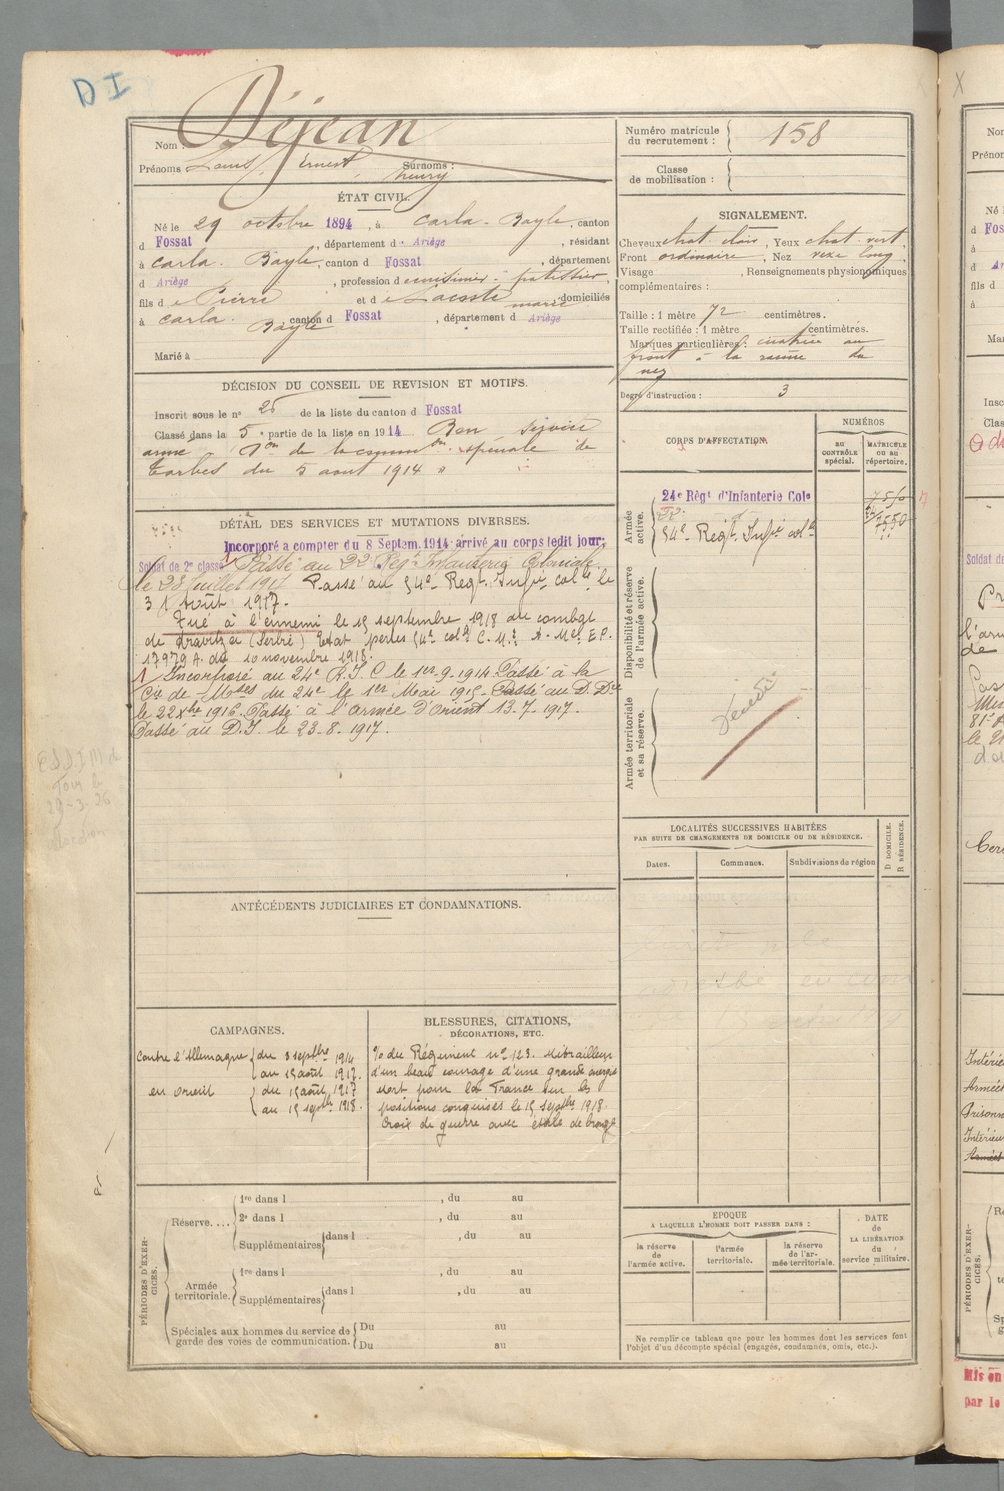 DI
Nom : Déjean
Prénoms Louis, Ernest, Surnoms :
henry
Numéro matricule
du recrutement : 158
Classe
de mobilisation :
ÉTAT CIVIL.
Né le 29 octobre 1894, à Carla-Bayle, canton
d Fossat, département d. Ariège, résidant
à Carla-Bayle, canton d Fossat, département
d Ariège, profession d cuisinier-patissier,
fils d e Pierre et d e Lacoste marie domiciliés
à Carla-Bayle, canton d Fossat, département d Ariège
Marié à
SIGNALEMENT.
Cheveux chat. clair, Yeux chat. vert,
Front ordinaire, Nez vexe long,
Visage , Renseignements physionomiques
complémentaires :
Taille : 1 mètre 72 centimètres.
Taille rectifiée : 1 mètre centimètres.
Marques particulières : cicatrice au
front à la racine du
nez
Degré d'instruction : 3
DÉCISION DU CONSEIL DE REVISION ET MOTIFS.
Inscrit sous le n° 25 de la liste du canton d Fossat
Classé dans la 5e partie de la liste en 1914 Bon service
armé de la comm on spéciale de
Tarbes du 5 aout 1914 "
CORPS D'AFFECTATION.
NUMÉROS
au
CONTRÔLE
spécial.
MATRICULE
ou au
répertoire.
Armée
active.
24e Régt d'Infanterie Cole
54e Regt Infie colle
7550
Disponibilité et réserve
de l'armée active.
Armée territoriale
et sa réserve.
Décédé
DÉTAIL DES SERVICES ET MUTATIONS DIVERSES.
Incorporé a compter du 8 Septem. 1914 arrivé au corps ledit jour;
Soldat de 2e classe Passé au 22 Reg. Infanterie Coloniale
le 23 juillet 1917 Passé au 54e Regt Infie colle le
31 Août 1917.
Tué à l'ennemi le 15 septembre 1918 au combat
de Gravitza (Serbie) Etat pertes 54e colal C.M. A. Mel E.P.
17979 A. du 10 novembre 1918.
1 Incorporé au 24e R.I.C le 1er-9-1914 Passé à la
Cie de Mses du 24e le 1er Mai 1915. Passé au D.D.
le 22 Xbre 1916. Passé à l'Armée d'Orient 13-7-1917.
Passé au D.I. le 23-8-1917.
LOCALITÉS SUCCESSIVES HABITÉES
PAR SUITE DE CHANGEMENTS DE DOMICILE OU DE RÉSIDENCE.
Dates.
Communes.
Subdivisions de région
D DOMICILE.
R RÉSIDENCE.
ANTÉCÉDENTS JUDICIAIRES ET CONDAMNATIONS.
CAMPAGNES.
Contre l'Allemagne du 8 septbre 1914
au 12 août 1917.
en Orient du 13 août 1917
au 15 septbre 1918.
BLESSURES, CITATIONS,
DÉCORATIONS, ETC.
% du Régiment n° 123. Mitrailleur
d'un beau courage d'une grande énergie
mort pour la France sur les
positions conquises le 15 septbre 1918.
Croix de guerre avec étoile de bronze
PÉRIODES D'EXER-
CICES.
Réserve....
1re dans l , du au
2e dans l , du au
Supplémentaires dans l , du au
Armée
territoriale.
1re dans l , du au
Supplémentaires dans l , du au
Spéciales aux hommes du service de
garde des voies de communication.
Du au
Du au
EPOQUE
A LAQUELLE L'HOMME DOIT PASSER DANS :
la réserve
de
l'armée active.
l'armée
territoriale.
la réserve
de l'ar-
mée territoriale.
DATE
de
LA LIBÉRATION
du
service militaire.
Ne remplir ce tableau que pour les hommes dont les services font
l'objet d'un décompte spécial (engagés, condamnés, omis, etc.).